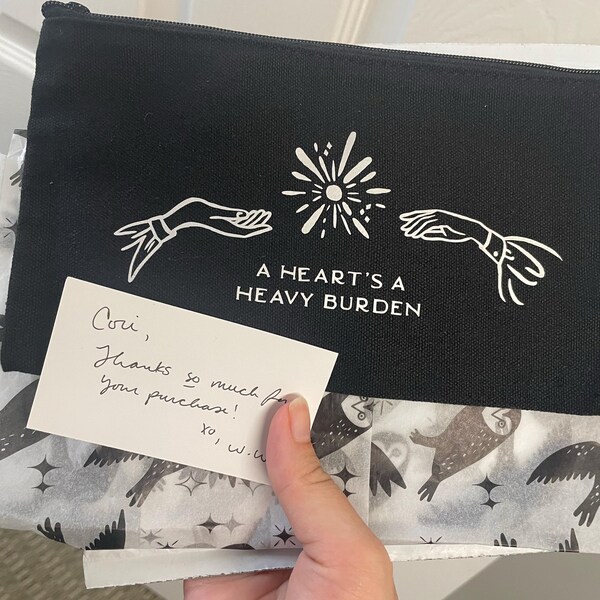 A HEART'S A
HEAVY BURDEN
Cori,
Thanks so much for
your purchase!
xo, W.W